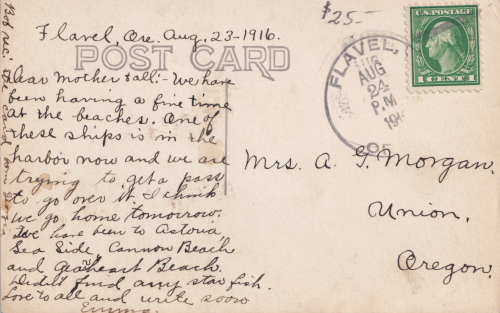 Flavel, Ore. Aug. 23-1916.
$25-
POST CARD
Dear Mother & all:- We have
been having a fine time
at the beaches. One of
these ships is in the
harbor now and we are
trying to get a pass
to go over it. I think
we go home tomorrow.
We have been to Astoria
Sea Side, Cannon Beach
and Gearheart Beach.
Didn't find any star fish.
Love to all and write soon
Emma.
Bob rec. the card
FLAVEL,
AUG
24
P.M
19
ORE
U.S. POSTAGE
1 CENT 1
Mrs. A. G. Morgan,
Union,
Oregon.